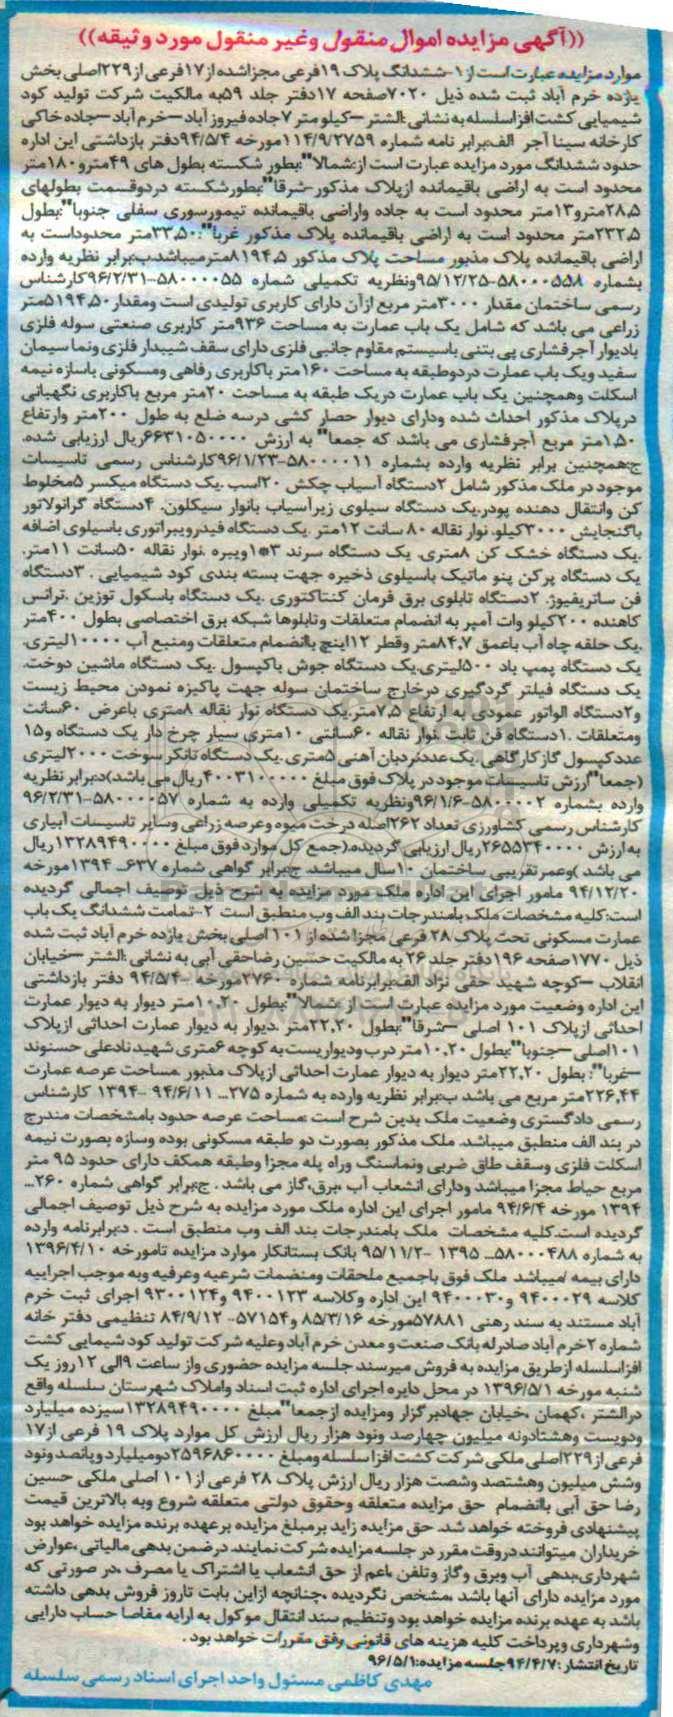 ((آگهی مزایده اموال منقول وغیر منقول مورد وثیقه))
موارد مزایده عبارت است از ۱-ششدانگ پلاک ۱۹فرعی مجزاشده از ۱۷فرعی از ۲۲۹اصلی بخش
یازده خرم آباد ثبت شده ذیل ۷۰۲۰صفحه ۱۷دفتر جلد ۵۹به مالکیت شرکت تولید کود
شیمیایی کشت افزاسلسله به نشانی:الشتر–کیلو متر ۷جاده فیروز آباد–خرم آباد–جاده خاکی
کارخانه سینا آجر الف:برابر نامه شماره ۱۱۴/۹/۲۷۵۹مورخه ۹۴/۵/۴دفتر بازداشتی این اداره
حدود ششدانگ مورد مزایده عبارت است از:شمالا":بطور شکسته بطول های ۴۹مترو۱۸۰متر
محدود است به اراضی باقیمانده ازپلاک مذکور-شرقا":بطورشکسته دردوقسمت بطولهای
۲۸،۵مترو۱۳متر محدود است به جاده واراضی باقیمانده تیمورسوری سفلی جنوبا":بطول
۲۳۲،۵متر محدود است به اراضی باقیمانده پلاک مذکور غربا":۳۳،۵۰متر محدوداست به
اراضی باقیمانده پلاک مذبور مساحت پلاک مذکور ۸۱۹۴،۵مترمیباشد.ب:برابر نظریه وارده
بشماره ۵۸۰۰۰۵۵۸–۹۵/۱۲/۲۵ونظریه تکمیلی شماره ۵۸۰۰۰۰۵۵–۹۶/۲/۳۱کارشناس
رسمی ساختمان مقدار ۳۰۰۰متر مربع ازآن دارای کاربری تولیدی است ومقدار۵۱۹۴،۵۰متر
زراعی می باشد که شامل یک باب عمارت به مساحت ۹۳۶متر کاربری صنعتی سوله فلزی
بادیوار آجرفشاری پی بتنی باسیستم مقاوم جانبی فلزی دارای سقف شیبدار فلزی ونما سیمان
سفید ویک باب عمارت دردوطبقه به مساحت ۱۶۰متر باکاربری رفاهی ومسکونی باسازه نیمه
اسکلت وهمچنین یک باب عمارت دریک طبقه به مساحت ۲۰متر مربع باکاربری نگهبانی
درپلاک مذکور احداث شده ودارای دیوار حصار کشی درسه ضلع به طول ۲۰۰متر وارتفاع
۱،۵۰متر مربع آجرفشاری می باشد که جمعا" به ارزش ۶۶۳۱۰۵۰۰۰۰ریال ارزیابی شده.
ج:همچنین برابر نظریه وارده بشماره ۵۸۰۰۰۰۱۱–۹۶/۱/۲۳کارشناس رسمی تاسیسات
موجود در ملک مذکور شامل ۲دستگاه آسیاب چکش ۲۰اسب .یک دستگاه میکسر ۵مخلوط
کن وانتقال دهنده پودر.یک دستگاه سیلوی زیرآسیاب بانوار سیکلون. ۴دستگاه گرانولاتور
باگنجایش ۳۰۰۰کیلو. نوار نقاله ۸۰ سانت ۱۲متر .یک دستگاه فیدرویبراتوری باسیلوی اضافه
.یک دستگاه خشک کن ۸متری. یک دستگاه سرند ۳*۱ویبره .نوار نقاله ۵۰سانت ۱۱متر.
یک دستگاه پرکن پنو ماتیک باسیلوی ذخیره جهت بسته بندی کود شیمیایی . ۳دستگاه
فن سانریفیوژ. ۲دستگاه تابلوی برق فرمان کنتاکتوری .یک دستگاه باسکول توزین .ترانس
کاهنده ۲۰۰کیلو وات آمپر به انضمام متعلقات وتابلوها شبکه برق اختصاصی بطول ۴۰۰متر
.یک حلقه چاه آب باعمق ۸۴،۷متر وقطر ۱۲اینچ باانضمام متعلقات ومنبع آب ۱۰۰۰۰لیتری.
یک دستگاه پمپ باد ۵۰۰لیتری.یک دستگاه جوش باکپسول .یک دستگاه ماشین دوخت.
یک دستگاه فیلتر گردگیری درخارج ساختمان سوله جهت پاکیزه نمودن محیط زیست
و۲دستگاه الواتور عمودی به ارتفاع ۷،۵متر.یک دستگاه نوار نقاله ۸متری باعرض ۶۰سانت
ومتعلقات .۱دستگاه فن ثابت .نوار نقاله ۶۰سانتی ۱۰متری سیار چرخ دار یک دستگاه و۱۵
عددکپسول گاز کارگاهی .یک عددنردبان آهنی ۵متری .یک دستگاه تانکر سوخت ۲۰۰۰لیتری
(جمعا"ارزش تاسیسات موجود در پلاک فوق مبلغ ۴۰۰۳۱۰۰۰۰۰ریال می باشد)د:برابر نظریه
وارده بشماره ۵۸۰۰۰۰۲–۹۶/۱/۶ونظریه تکمیلی وارده به شماره ۵۸۰۰۰۰۵۷–۹۶/۲/۳۱
کارشناس رسمی کشاورزی تعداد ۲۶۲اصله درخت میوه وعرصه زراعی وسایر تاسیسات آبیاری
به ارزش ۲۶۵۵۳۴۰۰۰۰ریال ارزیابی گردیده.(جمع کل موارد فوق مبلغ ۱۳۲۸۹۴۹۰۰۰۰ریال
می باشد )وعمر تقریبی ساختمان ۱۰سال میباشد. ج:برابر گواهی شماره ۶۳۷–۱۳۹۴مورخه
۹۴/۱۲/۲۰ مامور اجرای این اداره ملک مورد مزایده به شرح ذیل توصیف اجمالی گردیده
است:کلیه مشخصات ملک بامندرجات بند الف وب منطبق است ۲-تمامت ششدانگ یک باب
عمارت مسکونی تحت پلاک ۲۸ فرعی مجزا شده از ۱۰۱ اصلی بخش یازده خرم آباد ثبت شده
ذیل ۱۷۷۰صفحه ۱۹۶دفتر جلد ۲۶ به مالکیت حسین رضاحقی آبی به نشانی :الشتر –خیابان
انقلاب –کوچه شهید حقی نژاد الف:برابرنامه شماره ۲۷۶۰مورخه –۹۴/۵/۴ دفتر بازداشتی
این اداره وضعیت مورد مزایده عبارت است از :شمالا":بطول ۱۰،۲۰متر دیوار به دیوار عمارت
احداثی ازپلاک ۱۰۱ اصلی –شرقا":بطول ۲۲،۲۰متر .دیوار به دیوار عمارت احداثی ازپلاک
۱۰۱اصلی–جنوبا":بطول ۱۰،۲۰متر درب ودیواریست به کوچه ۶متری شهید نادعلی حسنوند
–غربا": بطول ۲۲،۲۰متر دیوار به دیوار عمارت احداثی ازپلاک مذبور .مساحت عرصه عمارت
۲۲۶،۴۴متر مربع می باشد ب:برابر نظریه وارده به شماره ۲۷۵–۹۴/۶/۱۱ –۱۳۹۴ کارشناس
رسمی دادگستری وضعیت ملک بدین شرح است :مساحت عرصه حدود بامشخصات مندرج
در بند الف منطبق میباشد. ملک مذکور بصورت دو طبقه مسکونی بوده وسازه بصورت نیمه
اسکلت فلزی وسقف طاق ضربی ونماسنگ وراه پله مجزا وطبقه همکف دارای حدود ۹۵ متر
مربع حیاط مجزا میباشد ودارای انشعاب آب ،برق،گاز می باشد . ج:برابر گواهی شماره ۲۶۰–
۱۳۹۴ مورخه ۹۴/۶/۴ مامور اجرای این اداره ملک مورد مزایده به شرح ذیل توصیف اجمالی
گردیده است.کلیه مشخصات ملک بامندرجات بند الف وب منطبق است . د:برابرنامه وارده
به شماره ۵۸۰۰۰۴۸۸–۱۳۹۵ –۹۵/۱۱/۲ بانک بستانکار موارد مزایده تامورخه ۱۳۹۶/۴/۱۰
دارای بیمه میباشد ملک فوق باجمیع ملحقات ومنضمات شرعیه وعرفیه وبه موجب اجراییه
کلاسه ۹۴۰۰۰۲۹ و۹۴۰۰۰۳۰ این اداره وکلاسه ۹۴۰۰۱۲۳ و۹۳۰۰۱۲۴ اجرای ثبت خرم
آباد مستند به سند رهنی ۵۷۸۸۱مورخه ۸۵/۳/۱۶ و۵۷۱۵۴–۸۴/۹/۱۲ تنظیمی دفتر خانه
شماره ۲خرم آباد صادرله بانک صنعت و معدن خرم آباد وعلیه شرکت تولید کود شیمایی کشت
افزاسلسله ازطریق مزایده به فروش میرسند جلسه مزایده حضوری واز ساعت ۹الی ۱۲روز یک
شنبه مورخه ۱۳۹۶/۵/۱ در محل دایره اجرای اداره ثبت اسناد واملاک شهرستان سلسله واقع
درالشتر ،کهمان ،خیابان جهادبرگزار ومزایده ازجمعا"مبلغ ۱۳۲۸۹۴۹۰۰۰۰سیزده میلیارد
ودویست وهشتادونه میلیون چهارصد ونود هزار ریال ارزش کل موارد پلاک ۱۹ فرعی از۱۷
فرعی از۲۲۹اصلی ملکی شرکت کشت افزا سلسله ومبلغ ۲۵۹۶۸۶۰۰۰۰دومیلیارد وپانصد ونود
وشش میلیون وهشتصد وشصت هزار ریال ارزش پلاک ۲۸ فرعی از۱۰۱ اصلی ملکی حسین
رضا حق آبی باانضمام حق مزایده متعلقه وحقوق دولتی متعلقه شروع وبه بالاترین قیمت
پیشنهادی فروخته خواهد شد. حق مزایده زاید برمبلغ مزایده برعهده برنده مزایده خواهد بود
خریداران میتوانند دروقت مقرر در جلسه مزایده شرکت نمایند. درضمن بدهی مالیاتی ،عوارض
شهرداری،بدهی آب وبرق وگاز وتلفن ،اعم از حق انشعاب یا اشتراک یا مصرف ،در صورتی که
مورد مزایده دارای آنها باشد ،مشخص نگردیده ،چنانچه ازاین بابت تاروز فروش بدهی داشته
باشد به عهده برنده مزایده خواهد بود وتنظیم سند انتقال موکول به ارایه مفاصا حساب دارایی
وشهرداری وپرداخت کلیه هزینه های قانونی وفق مقررات خواهد بود .
تاریخ انتشار :۹۴/۴/۷جلسه مزایده:۹۶/۵/۱
مهدی کاظمی مسئول واحد اجرای اسناد رسمی سلسله